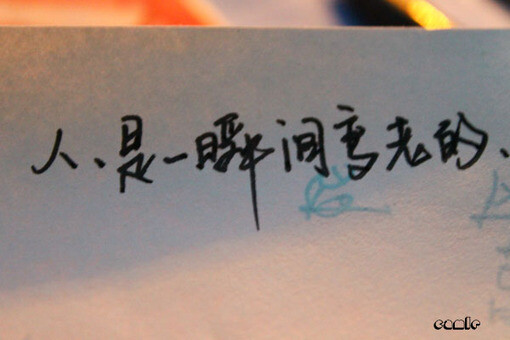 人、是一瞬间变老的、